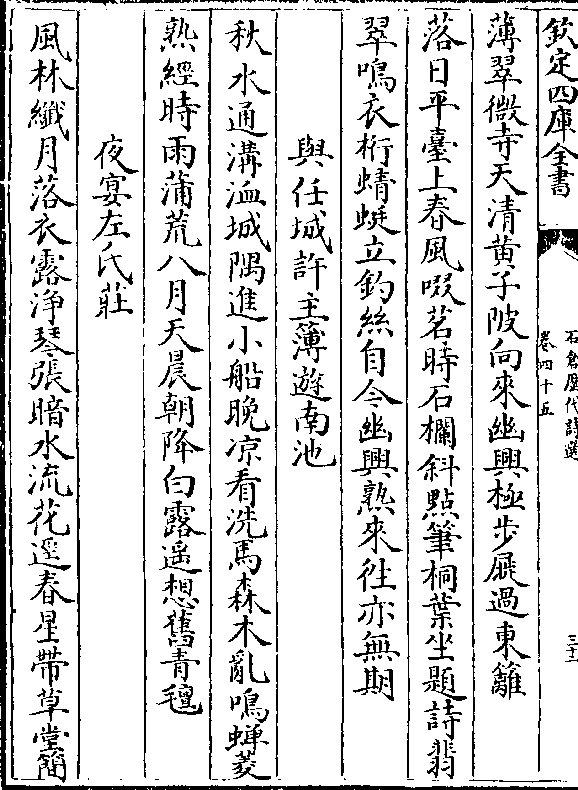 欽定四庫全書
石倉歷代詩選
卷四十五
三十一
薄翠微寺天清黄子陂向來幽興極步屣過東籬
落日平臺上春風啜茗時石欄斜點筆桐葉坐題詩翡
翠鳴衣桁蜻蜓立釣絲自今幽興熟來往亦無期
與任城許主簿遊南池
秋水通溝洫城隅進小船晚凉看洗馬森木亂鳴蟬菱
熟經時雨蒲荒八月天晨朝降白露遥想舊青氊
夜宴左氏莊
風林纎月落衣露浄琴張暗水流花逕春星帶草堂簡